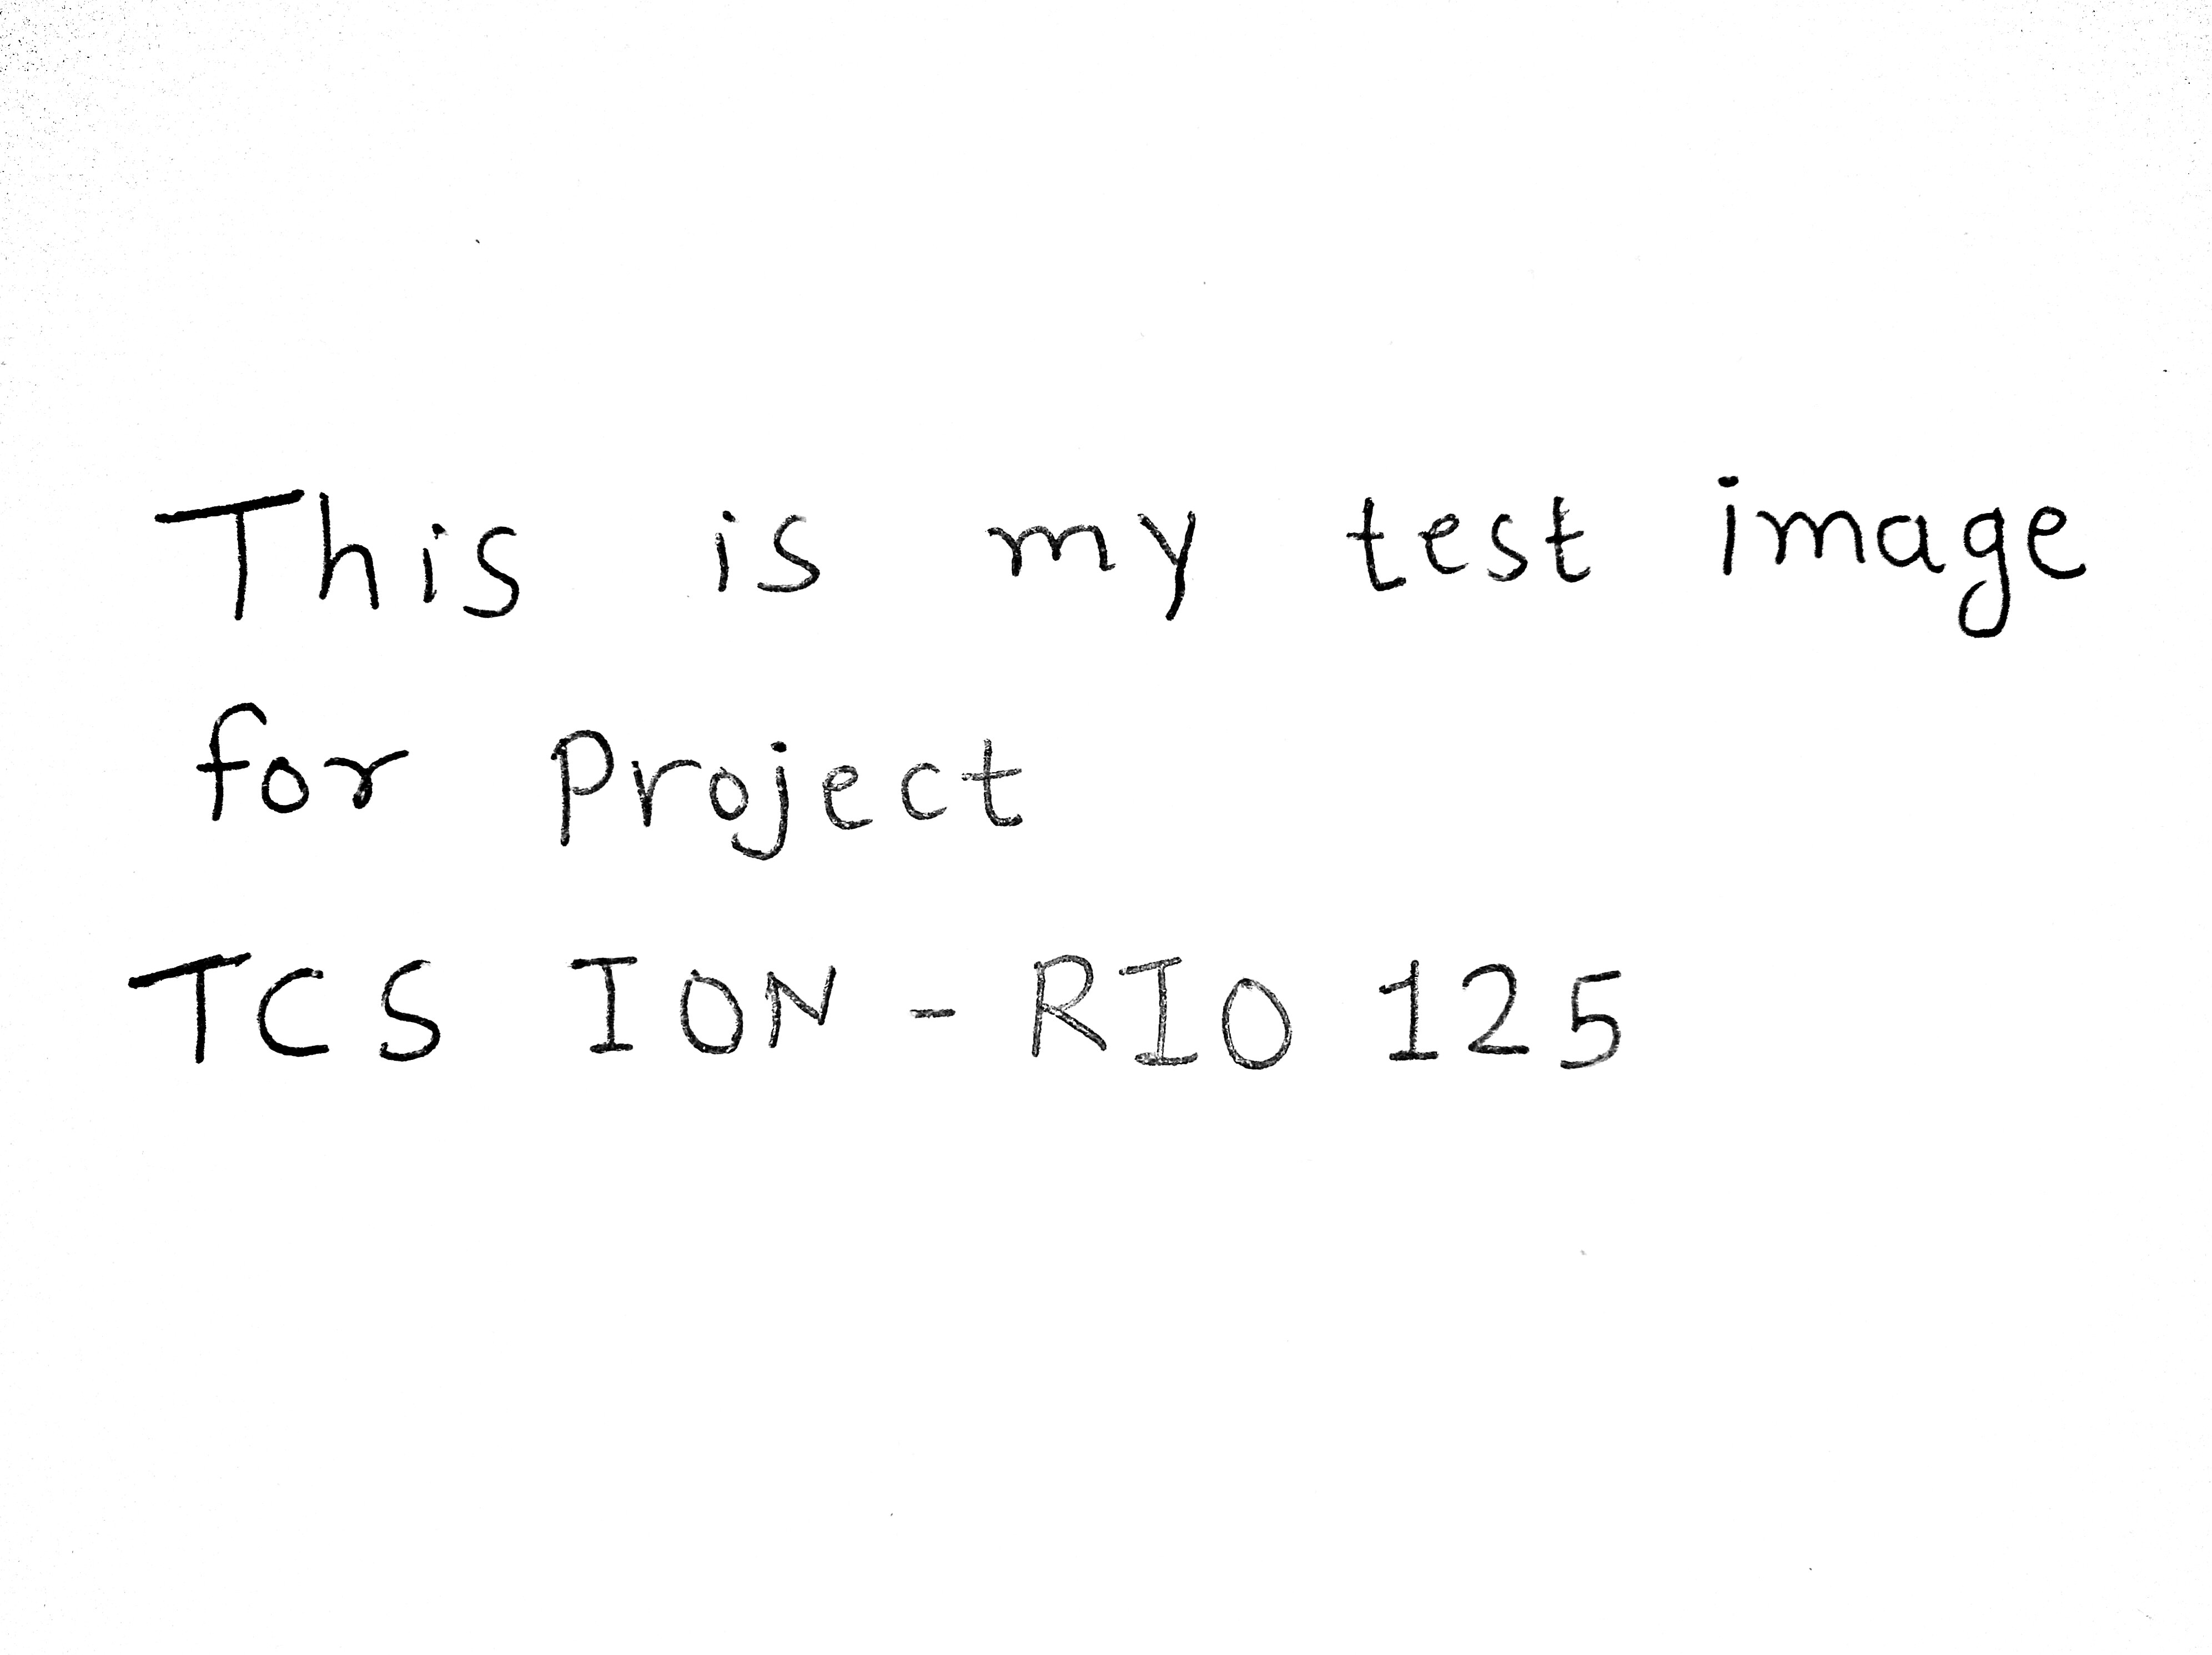 This is my test image
for Project
TCS ION - RIO 125